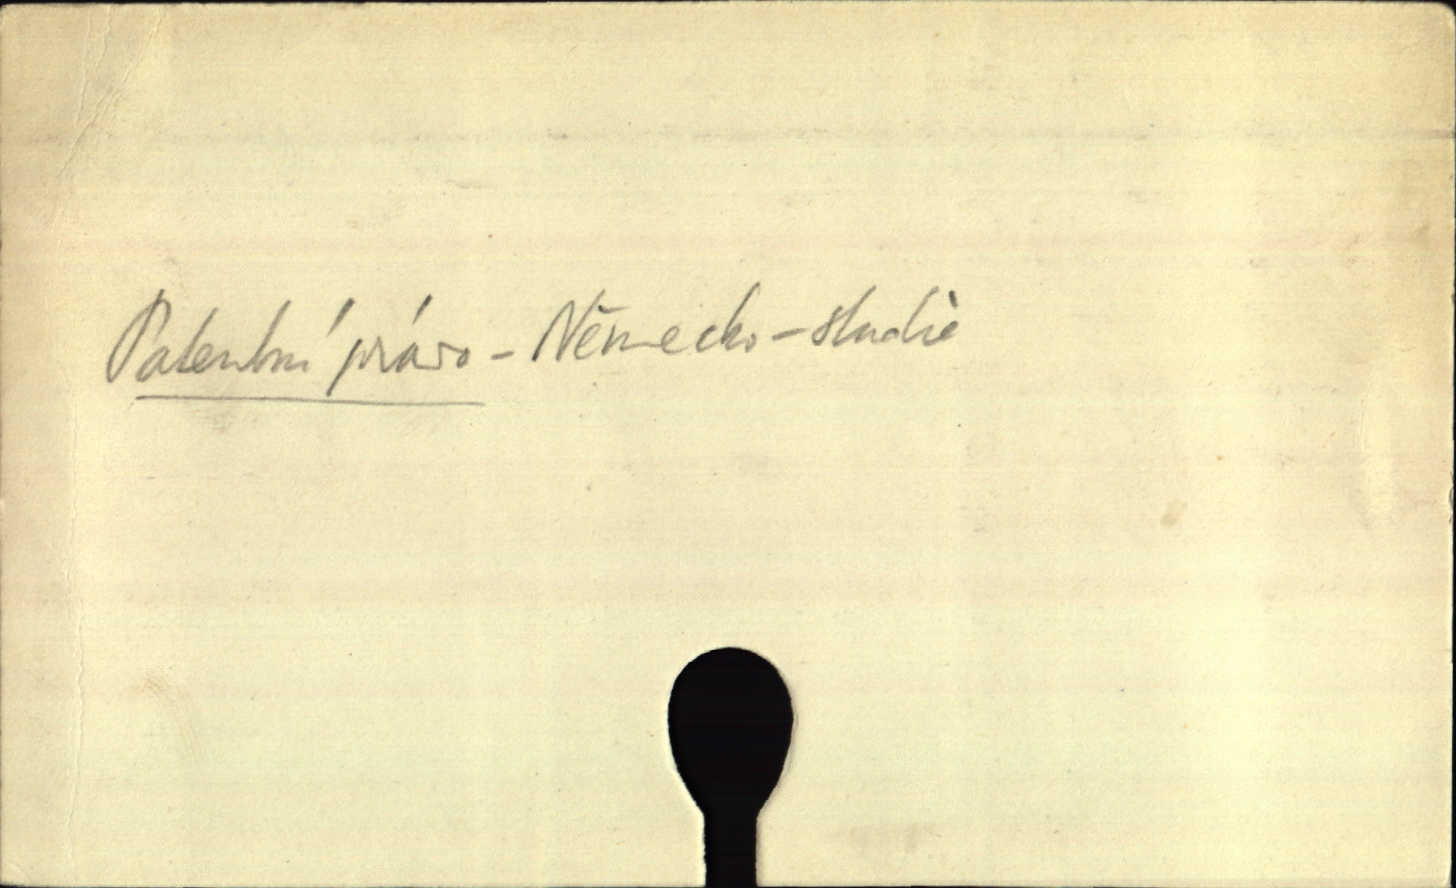 Patentní právo - Německo - studie